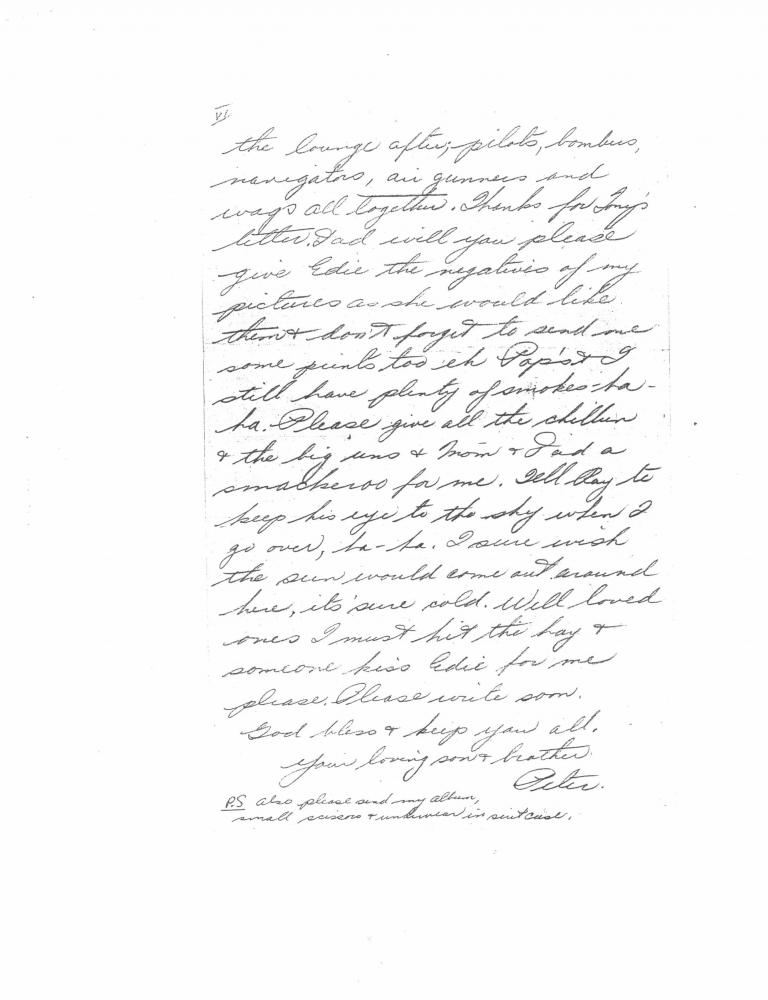 VI.
the lounge after; pilots, bombers,
navigators, air gunners and
wags all together. Thanks for Tony's
letter. Dad will you please
give Edie the negatives of my
pictures as she would like
them & don't forget to send me
some prints too eh Pop's & I
still have plenty of smokes - ha -
ha. Please give all the chillun
& the big uns & Mom & Dad a
smackeroo for me. Tell Ray to
keep his eye to the sky when I
go over, ha-ha. I sure wish
the sun would come out around
here, its sure cold. Well loved
ones I must hit the hay &
someone kiss Edie for me
please. Please write soon.
God bless & keep you all.
Your loving son & brother
Peter.
P.S also please send my album,
small scissors & underwear in suit case.